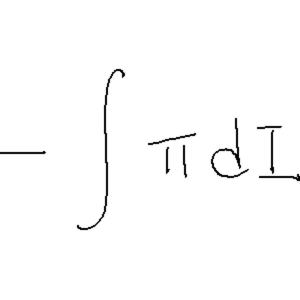 - ∫ π d I